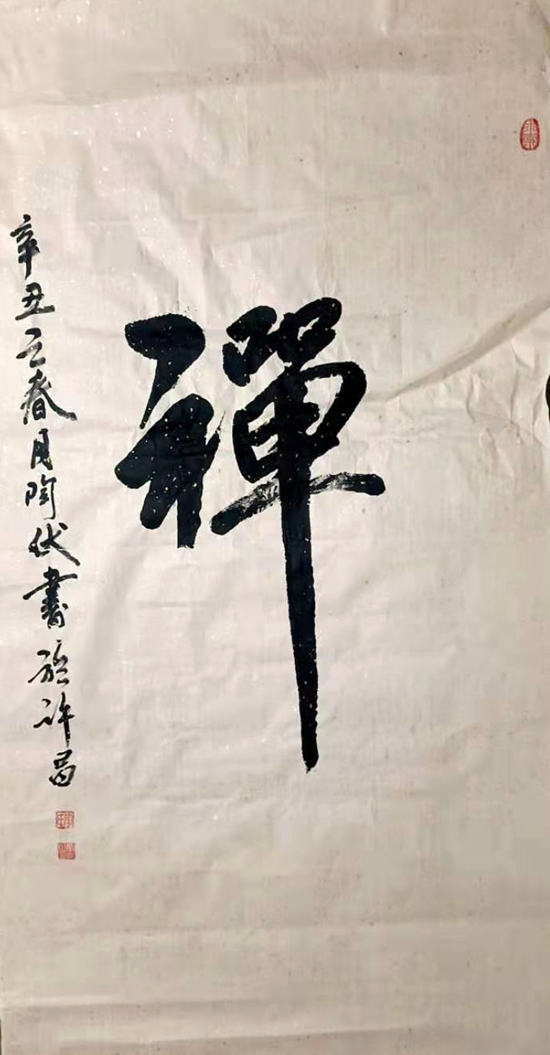 禪
辛丑之春月陶伏書於許昌